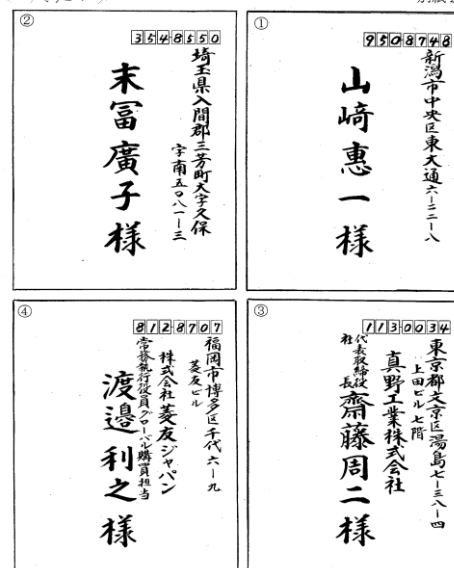 ①
9508748
新潟市中央区東大通六ー二二ー八
山﨑惠一様
②
3548550
埼玉県入間郡三芳町大字久保
字南五〇八一ー三
末冨廣子様
③
1130034
東京都文京区湯島七ー三八ー四
上田ビル七階
真野工業株式会社
代表取締役
社長
齋藤周二様
④
8128707
福岡市博多区千代六ー九
菱友ビル
株式会社菱友ジャパン
常務執行役員グローバル購買担当
渡邉利之様